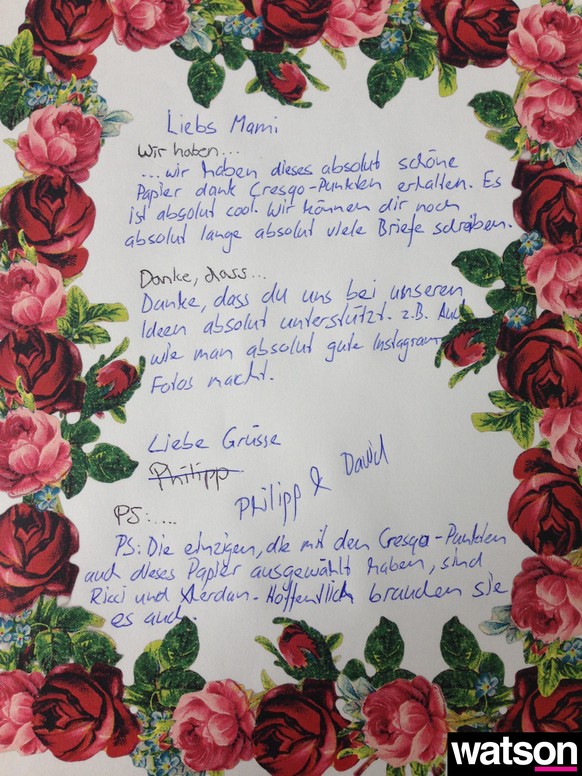 Liebs Mami
Wir haben...
...wir haben dieses absolut schöne
Papier dank Cresqo-Punkten erhalten. Es
ist absolut cool. Wir können dir noch
absolut lange absolut viele Briefe schreiben.
Danke, dass...
Danke, dass du uns bei unseren
Ideen absolut unterstützt. z.B. Auch
wie man absolut gute Instagram
Fotos macht.
Liebe Grüsse
Philipp
Philipp & David
PS:....
PS: Die einzigen, die mit den Cresqo-Punkten
auch dieses Papier ausgewählt haben, sind
Ricci und . Hoffentlich brauchen sie
es auch.
watson